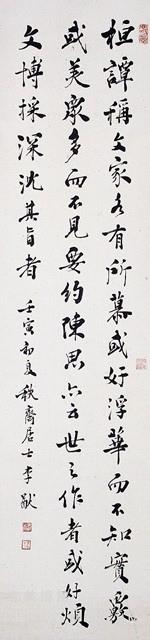 桓譚稱文家各有所慕或好浮華而不知實覈
或美衆多而不見要約陳思亦云世之作者或好煩
文博採深沈其旨者
壬寅初夏 銕齋居士李猷